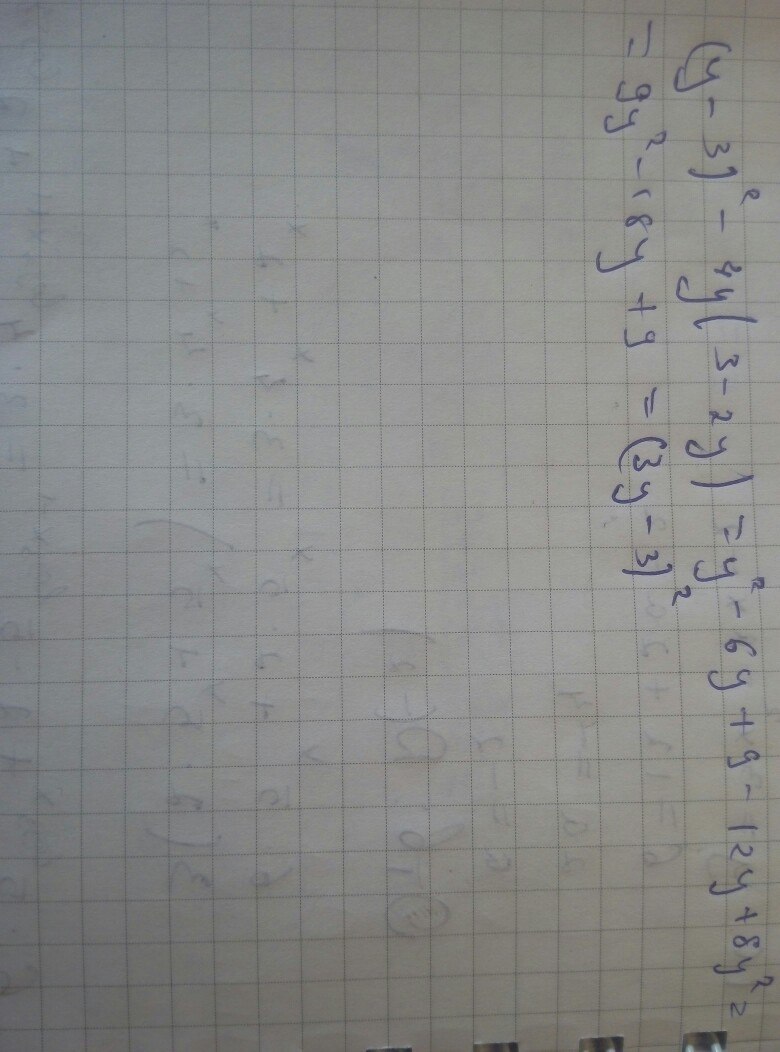 (y - 3)² - 4y(3 - 2y) = y² - 6y + 9 - 12y + 8y² =
= 9y² - 18y + 9 = (3y - 3)²